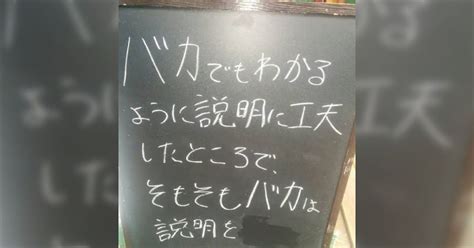 バカでもわかる
ように説明に工夫
したところで、
そもそもバカは
説明を